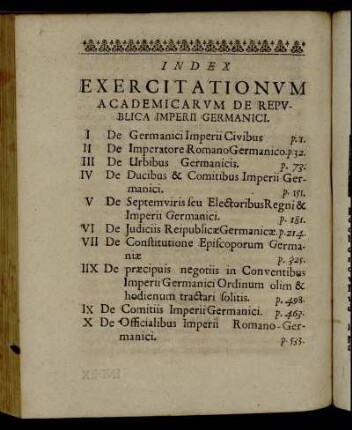 INDEX
EXERCITATIONVM
ACADEMICARVM DE REPV-
BLICA IMPERII GERMANICI.
I De Germanici Imperii Civibus p.1.
II De Imperatore Romano Germanico.p32.
III De Urbibus Germanicis. p. 73.
IV De Ducibus & Comitibus Imperii Ger-
manici. p. 151.
V De Septemviris seu Electoribus Regni &
Imperii Germanici. p. 181.
VI De Judiciis Reipublicæ Germanicæ.p.214.
VII De Constitutione Episcoporum Germa-
niæ p. 325.
IIX De præcipuis negotiis in Conventibus
Imperii Germanici Ordinum olim &
hodienum tractari solitis. p. 498.
IX De Comitiis Imperii Germanici. p. 463.
X De Officialibus Imperii Romano-Ger-
manici. p.533.